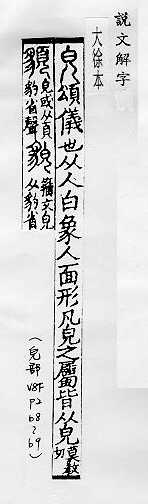 說文解字
大徐本
皃頌儀也从人白象人面形凡皃之屬皆从皃莫教切
䫉皃或从頁豹省聲貌籒文皃从豹省
(皃部 V8F P2 b8~b9)